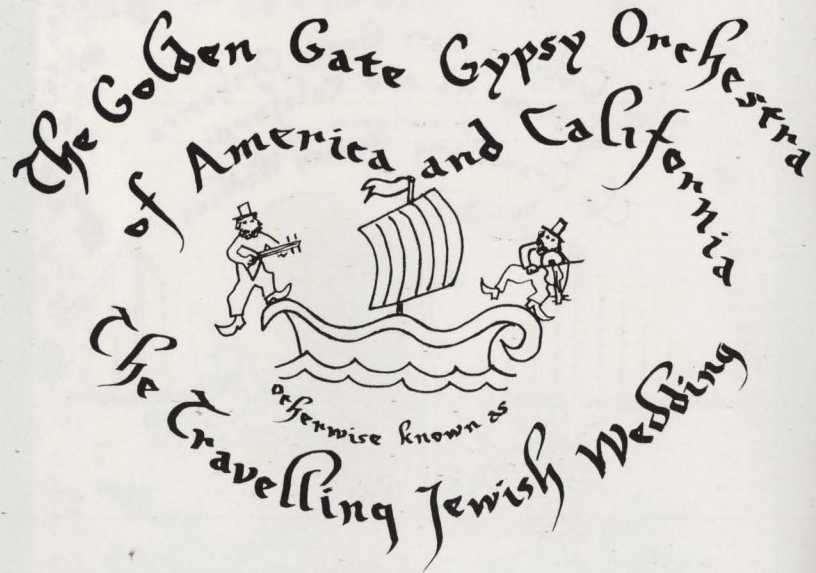 The Golden Gate Gypsy Orchestra
of America and California
otherwise known as
The Travelling Jewish Wedding